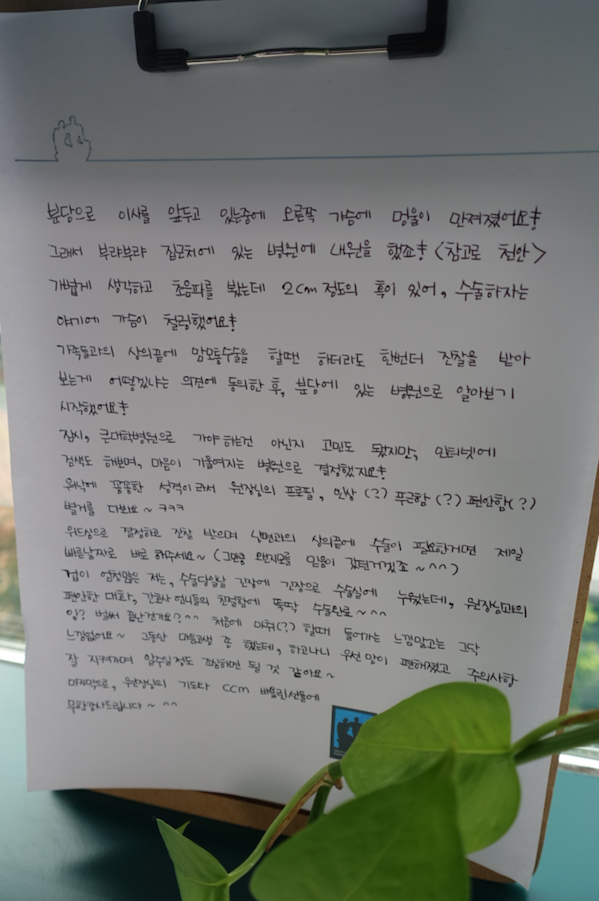 분당으로 이사를 앞두고 있는중에 오른쪽 가슴에 멍울이 만져졌어요!
그래서 부랴부랴 집근처에 있는 병원에 내원을 했죠! <참고로 천안>
가볍게 생각하고 초음파를 봤는데 2cm 정도의 혹이 있어, 수술하자는
얘기에 가슴이 철렁했어요!
가족들과의 상의끝에 맘모톰수술을 할땐 하더라도 한번더 진찰을 받아
보는게 어떻겠냐는 의견에 동의한 후, 분당에 있는 병원으로 알아보기
시작했어요!
잠시, 큰대학병원으로 가야 하는건 아닌지 고민도 됐지만, 인터넷에
검색도 해보며, 마음이 기울여지는 병원으로 결정했지요!
워낙에 꼼꼼한 성격이라서 원장님의 프로필, 인상(?) 푸근함(?) 편안함(?)
별거를 다봐요~ ㅋㅋㅋ
결정하고 진찰 받으며 상의끝에 수술이 필요한거면 제일
빠른날짜로 바로 해주세요~ (그만큼 믿음이 갔던거겠죠~^^)
겁이 엄청많은 저는, 수술당일날 긴장에 긴장으로 수술실에 누웠는데, 원장님과의
편안한 대화, 간호사 언니들의 친절함에 뚝딱 수술완료~^^
잉? 벌써 끝난건가요?^^ 처음에 마취(?) 할때 들어가는 느낌말고는 그닥
느낌없어요~ 그동안 마음고생 좀 했는데, 하고나니 우선 맘이 편해졌고 주의사항
잘 지켜가며 일주일정도 조심하면 될 것 같아요~
마지막으로, 원장님의 기도와 CCM 선물에
무한감사드립니다~ ^^